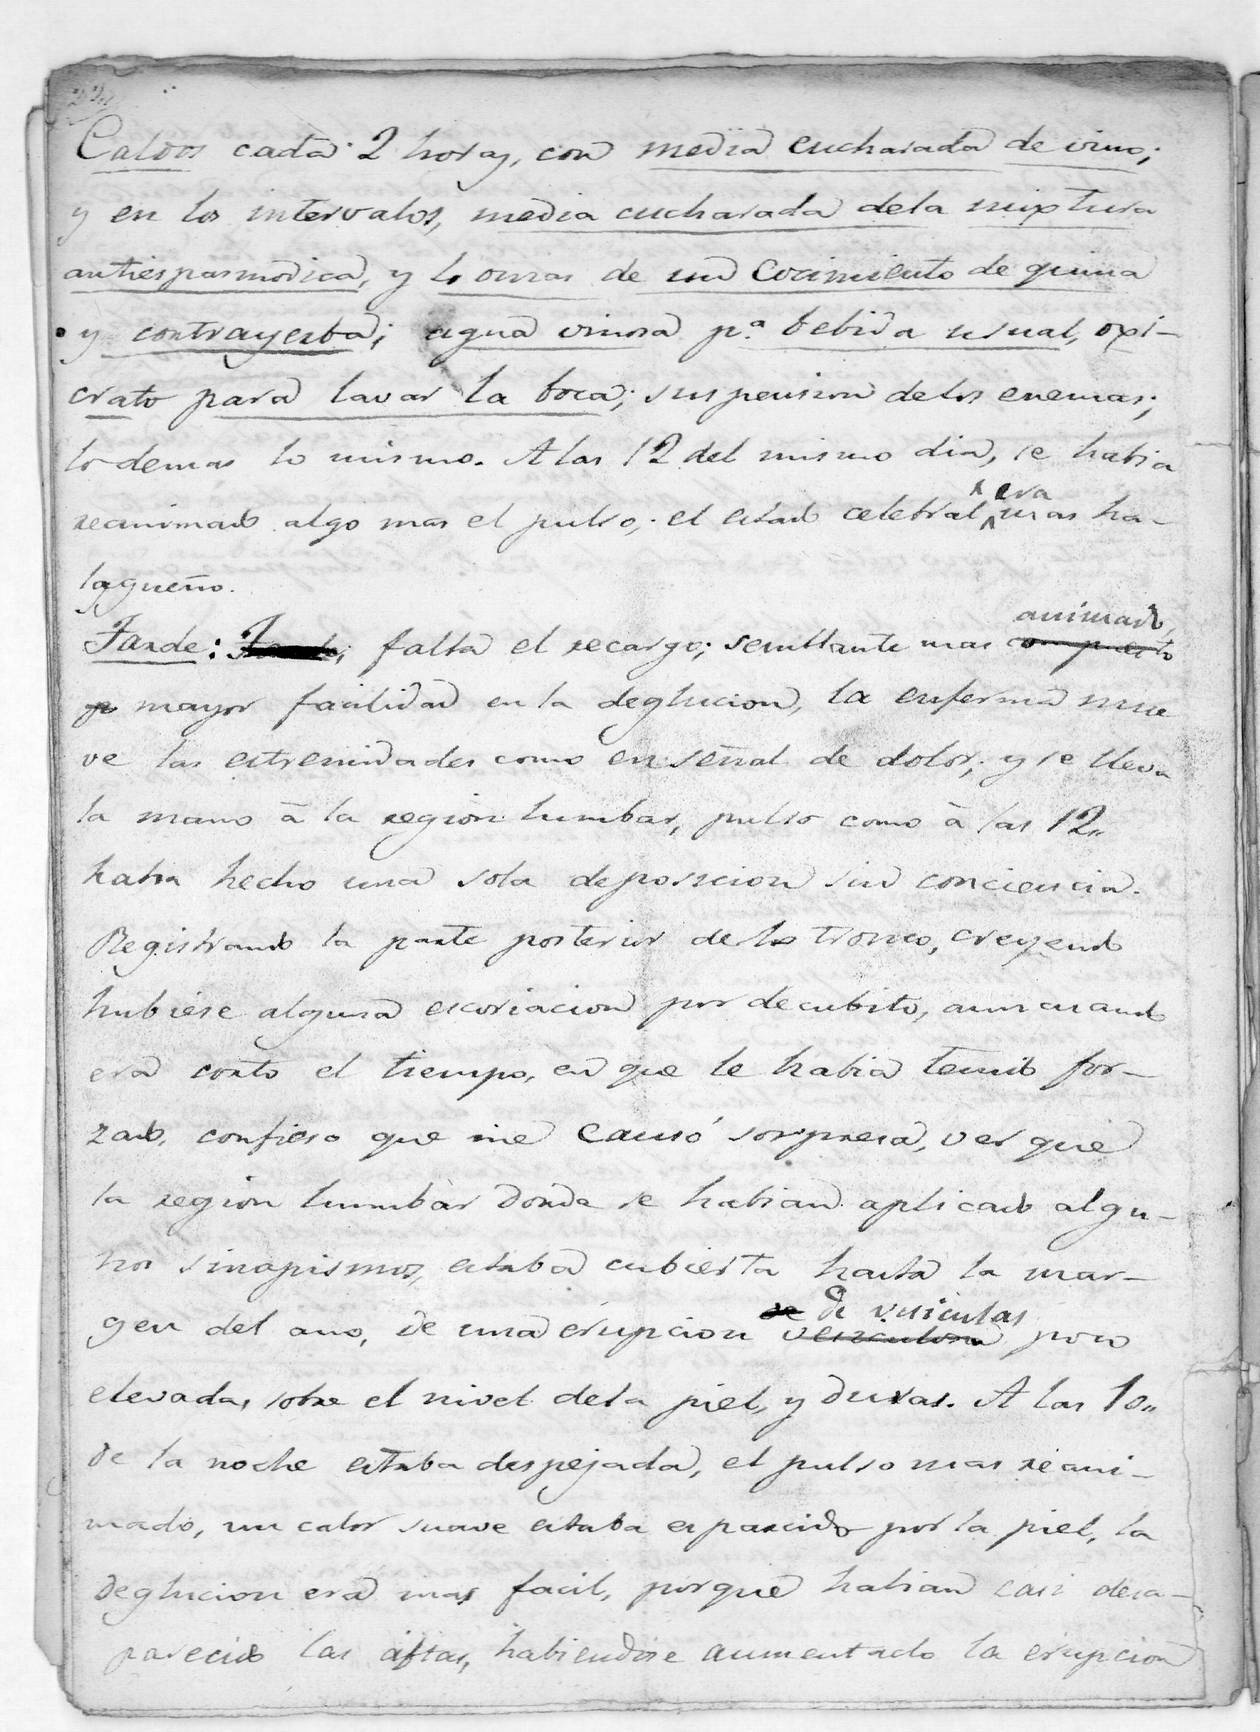 Caldos cada 2 horas, con media cucharada de vino;
y en los intervalos, media cucharada dela mixtura
antiespasmodica, y lo onzas de un Cocimiento de quina
y contrayerba; agua vinosa p.ª bebida usual, oxi-
crato para lavar la boca; suspension delos enemas;
lo demas lo mismo. A las 12 del mismo dia, se habia
reanimado algo mas el pulso, el estado celebral, era mas ha-
lagueño.
Tarde: falta el recargo; semblante mas compuesto animado,
mayor facilidad en la deglucion, la enferma mue
ve las estremidades como en señal de dolor, y se lleva
la mano à la region lumbar, pulso como à las 12..
habia hecho una sola deposicion sin conciencia.
Registrando la parte posterior de lo tronco, creyendo
hubiese alguna escoriacion por decubito, aun cuando
era corto el tiempo, en que le habia tenido for-
zado, confieso que me causó sorpresa, ver que
la region lumbàr donde se habian aplicado algu-
nos sinapismos, estaba cubierta hasta la mar-
gen del ano, de una érupcion se de vesiculas vesiculosa poco
elevadas, sobre el nivel dela piel, y duras. A las 10..
de la noche estaba despejada, el pulso mas reani-
mado, un calor suave estaba esparcido por la piel, la
deglucion era mas facil, porque habian casi desa-
parecido las áftas, habiendose aumentado la erupcion